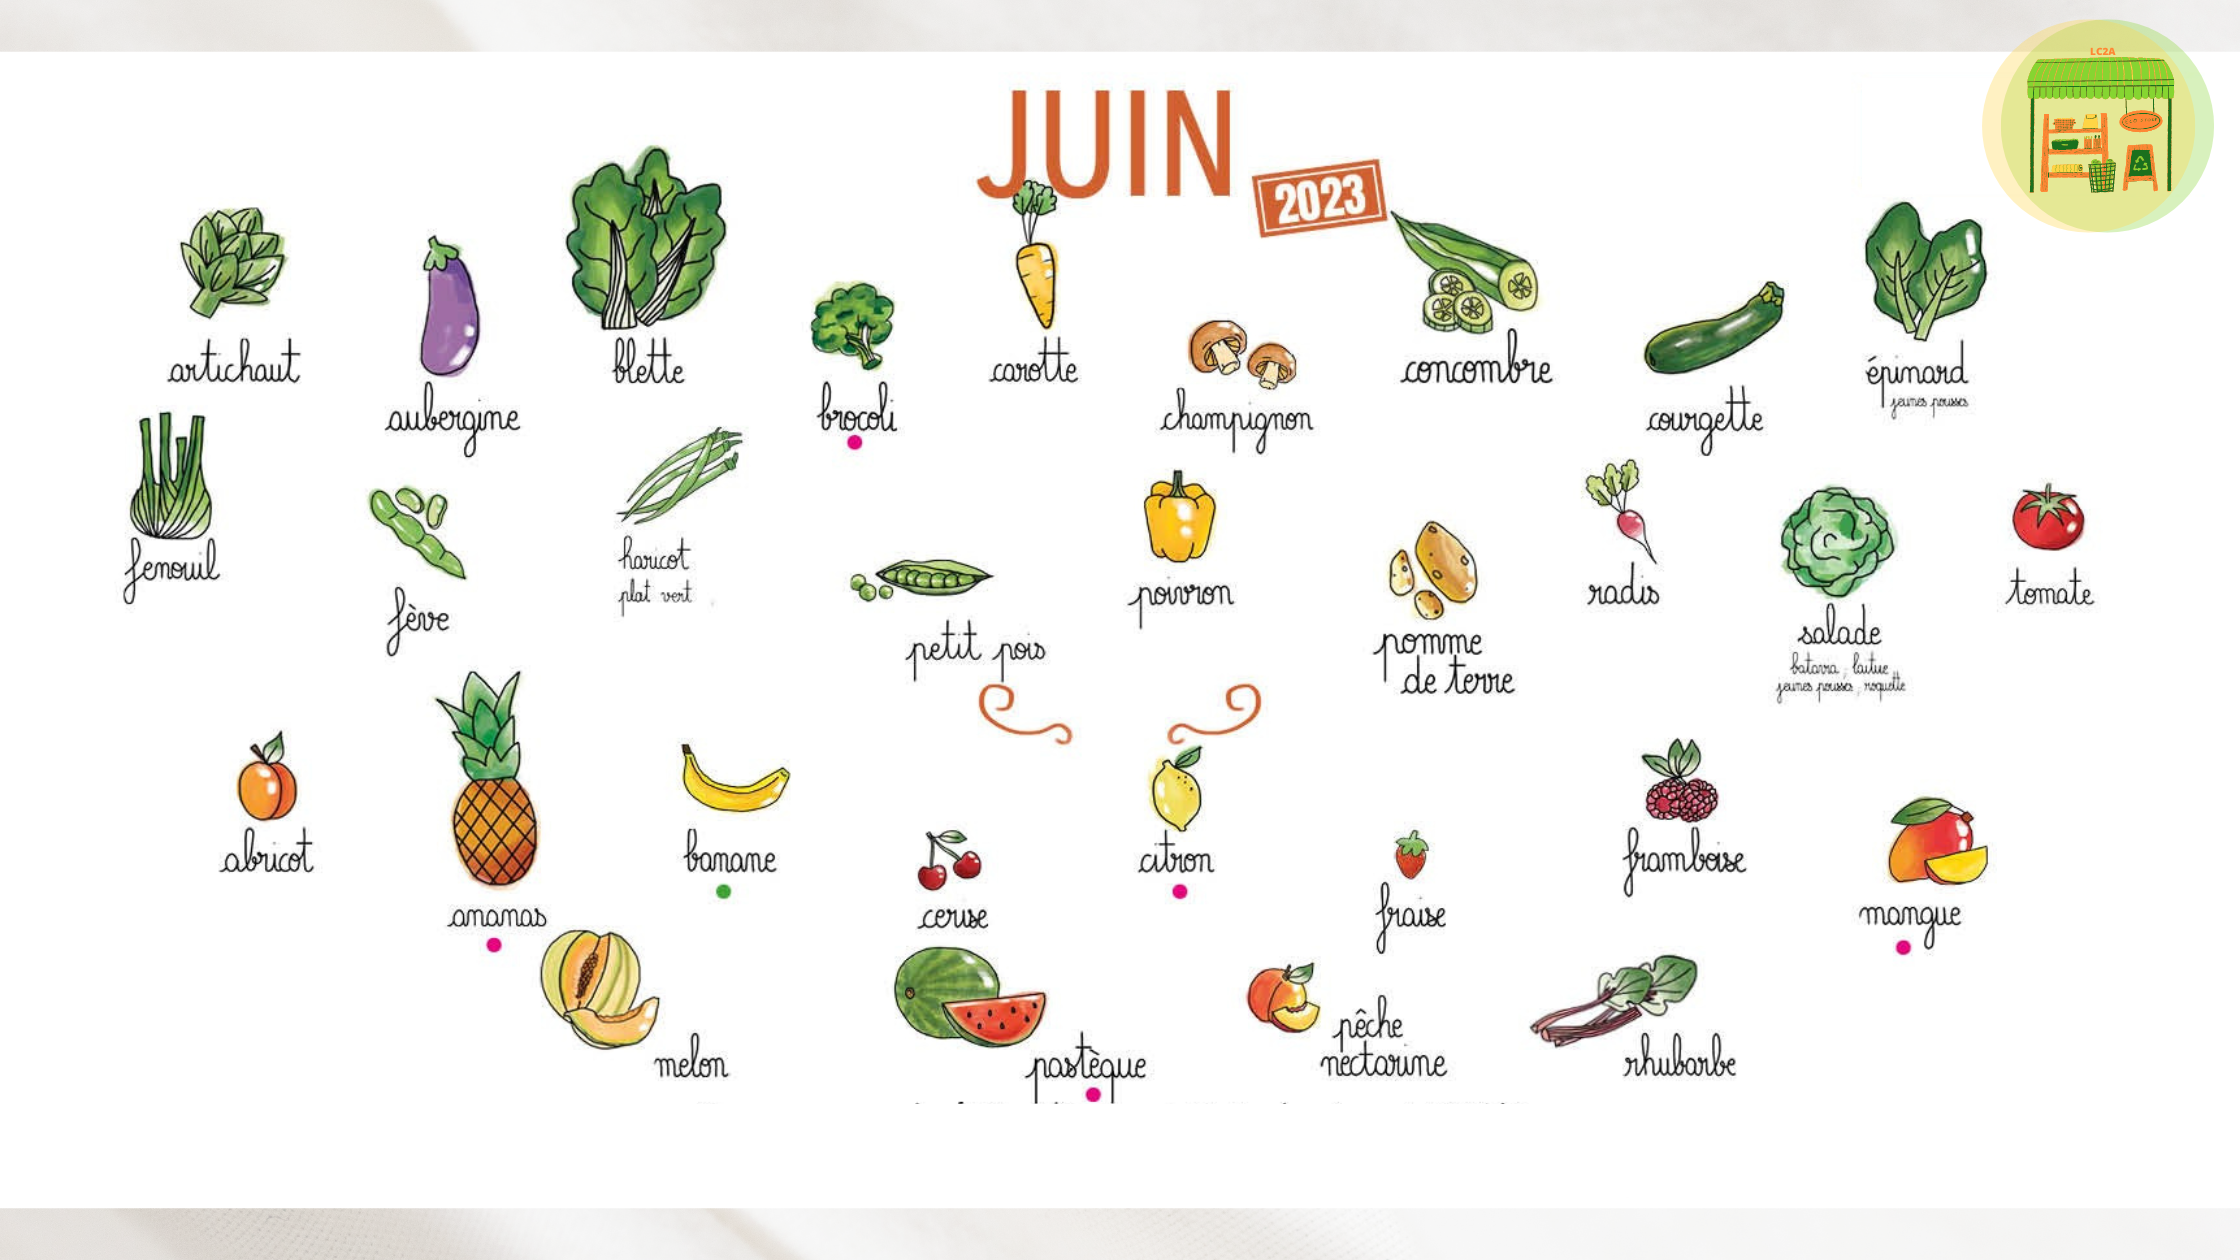 LC2A
JUIN
2023
artichaut
aubergine
blette
brocoli
carotte
champignon
concombre
courgette
épinard
jeunes pousses
fenouil
fève
haricot
plat vert
petit pois
poivron
pomme
de terre
radis
salade
batavia, laitue,
jeunes pousses, roquette
tomate
abricot
ananas
banane
cerise
citron
fraise
framboise
mangue
melon
pastèque
pêche
nectarine
rhubarbe